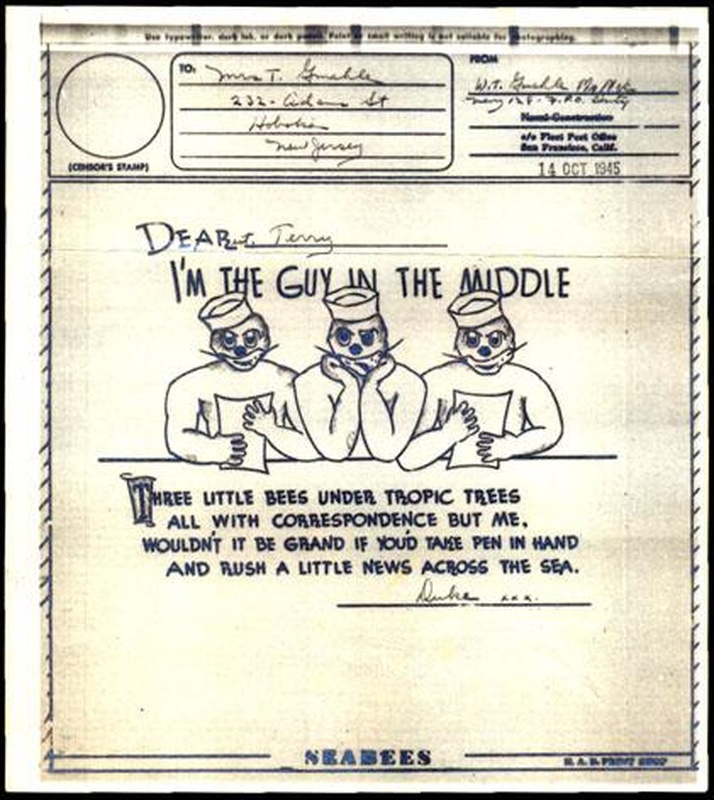 Use typewriter, dark ink, or dark pencil. Faint or small writing is not suitable for photographing.
TO:
Mrs T.
232- Adams St
Hoboken
New Jersey
(CENSOR'S STAMP)
FROM
W.T.
Naval Construction
c/o Fleet Post Office
San Francisco, Calif.
14 OCT 1945
DEAR Terry
I'M THE GUY IN THE MIDDLE
THREE LITTLE BEES UNDER TROPIC TREES
ALL WITH CORRESPONDENCE BUT ME.
WOULDN'T IT BE GRAND IF YOU'D TAKE PEN IN HAND
AND RUSH A LITTLE NEWS ACROSS THE SEA.
Duke xxx.
SEABEES
PRINT SHOP